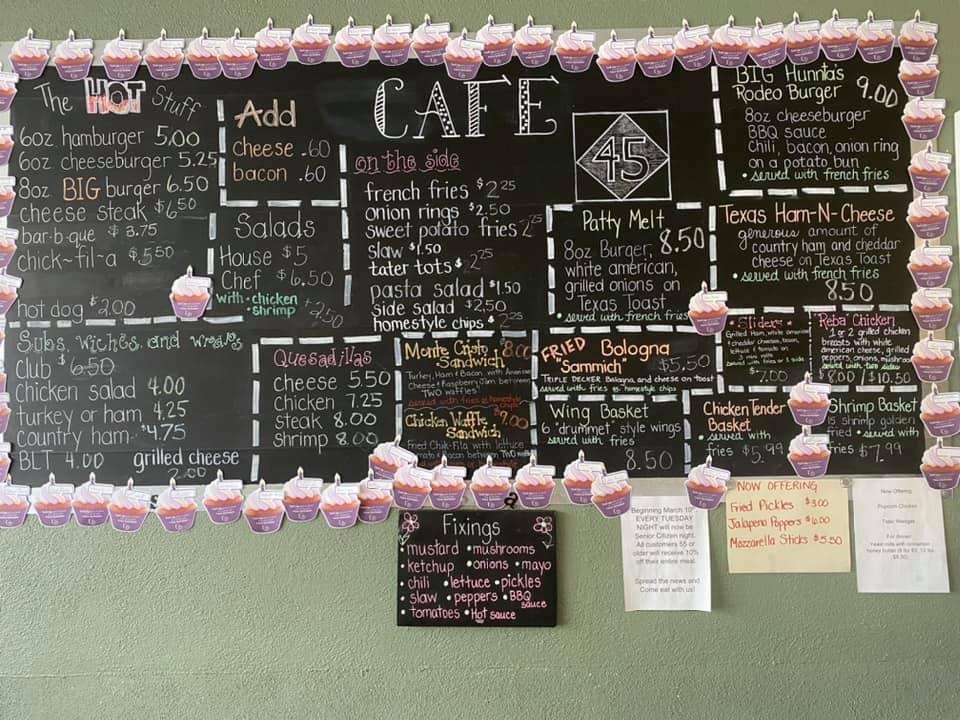 The HOT Stuff
6oz hamburger 5.00
6oz cheeseburger 5.25
8oz BIG burger 6.50
cheese steak $6.50
bar-b-que $3.75
chick~fil~a $5.50
hot dog $2.00
Add
cheese .60
bacon .60
Salads
House $5
Chef $6.50
with • chicken
• shrimp
CAFE
45
on the side
french fries $2.25
onion rings $2.50
sweet potato fries 2.25
slaw $1.50
tater tots $2.25
pasta salad $1.50
side salad $2.50
homestyle chips $2.25
BIG Hunnta's
Rodeo Burger 9.00
8oz cheeseburger
BBQ sauce
chili, bacon, onion ring
on a potato bun
• served with french fries
Patty Melt
8oz Burger, 8.50
white american,
grilled onions on
Texas Toast
• served with french fries
Texas Ham-N-Cheese
generous amount of
country ham and cheddar
cheese on Texas Toast
• served with french fries
8.50
Subs, wiches, and wraps
club $6.50
Chicken salad 4.00
turkey or ham 4.25
country ham $4.75
BLT 4.00 grilled cheese
Quesadillas
cheese 5.50
Chicken 7.25
Steak 8.00
shrimp 8.00
Monte Cristo 8.00
Sandwich
Turkey, Ham & Bacon with American
Cheese & Raspberry Jam between
TWO waffles
served with fries or homestyle chips
Chicken Waffle $9.00
Sandwich
Fried Chik-Fila with lettuce
tomato & bacon between TWO
FRIED Bologna
"Sammich" $5.50
TRIPLE DECKER Bologna, and cheese on toast
served with fries or homestyle chips
Wing Basket
6 "drummet" style wings
served with fries
8.50
• Sliders •
$7.00
"Reba" Chicken
1 or 2 grilled chicken
breasts with white
american cheese, grilled
peppers, onions,
served with two sides
8.00 / $10.50
Chicken Tender
Basket
• served with
fries $5.99
Shrimp Basket
15 shrimp golden
fried • served with
fries $7.99
Fixings
• mustard • mushrooms
ketchup • onions • mayo
• chili • lettuce • pickles
• slaw • peppers • BBQ sauce
• tomatoes • Hot sauce
Beginning March 10
EVERY TUESDAY
NIGHT will now be
Senior Citizen night.
All customers 55 or
older will receive 10%
off their entire meal.
Spread the news and
Come eat with us!
NOW OFFERING
Fried Pickles $3.00
Jalapeno Poppers $6.00
Mozzarella Sticks $5.50
Now Offering
Popcorn Chicken
Tater Wedges
For dinner: